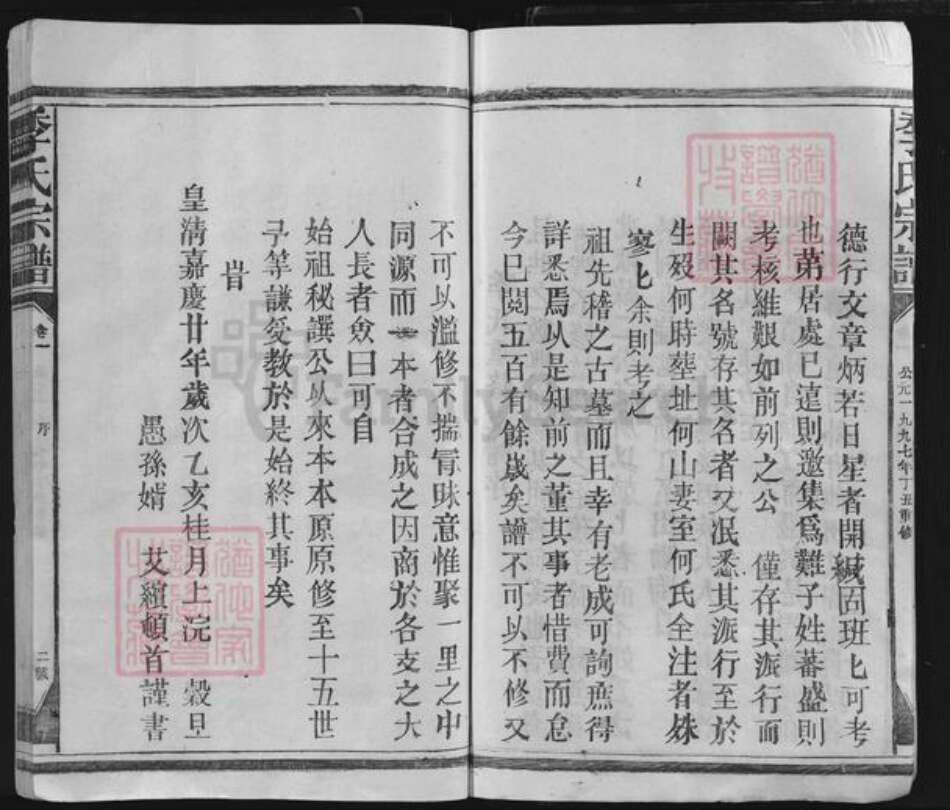 李氏宗譜
公元一九九七年丁丑重修
德行文章炳若日星者開緘固班匕可考
也第居處已遠則邀集爲難子姓蕃盛則
考核維艱如前列之公　僅存其派行而
闕其名號存其名者又泯悉其派行至於
生殁何時葬址何山妻室何氏全注者殊
寥匕余則考之
祖先稽之古墓而且幸有老成可詢庶得
詳悉焉以是知前之董其事者惜費而怠
今巳閱五百有餘歲矣譜不可以不修又
不可以濫修不揣冐昧意惟聚一里之中
同源而　本者合成之因商於各支之大
人長者僉曰可自
始祖秘譔公以來本本原原修至十五世
予等謙受教於是始終其事矣
旹
皇淸嘉慶廿年歲次乙亥桂月上浣　穀旦
愚孫婿　艾纘頓首謹書
李氏宗譜
卷一
序
二號